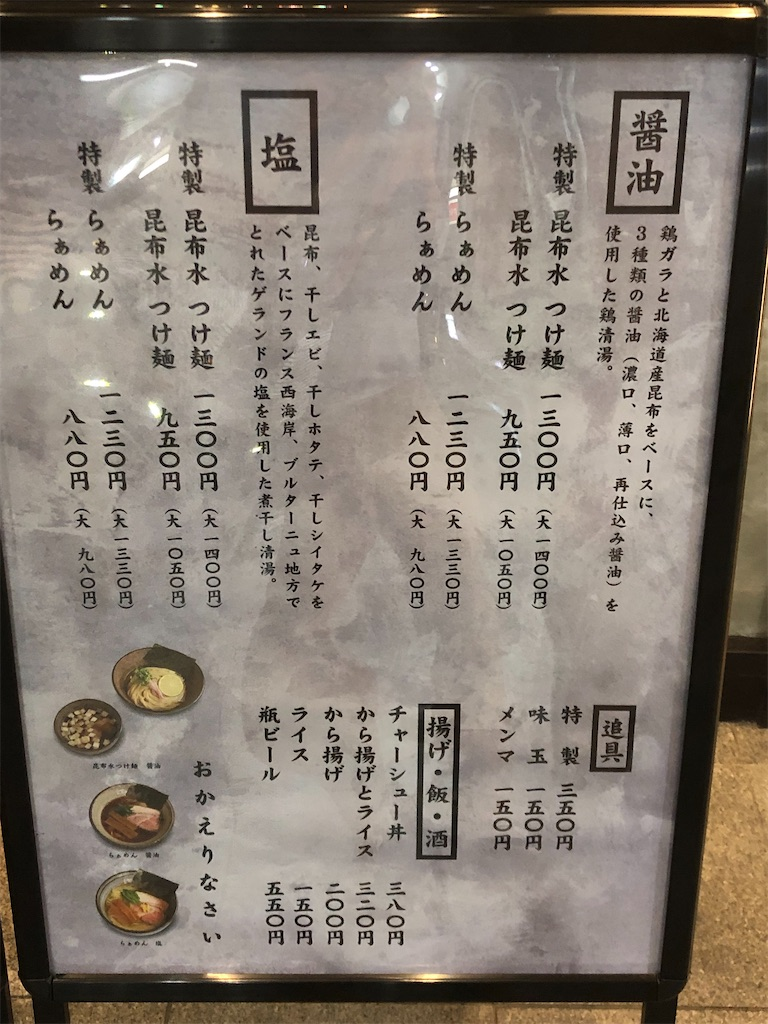 醤油
鶏ガラと北海道産昆布をベースに、
3種類の醤油(濃口、薄口、再仕込み醤油)を
使用した鶏清湯。
特製 昆布水 つけ麺 一三〇〇円(大 一四〇〇円)
昆布水 つけ麺 九五〇円(大 一〇五〇円)
特製 らぁめん 一二三〇円(大 一三三〇円)
らぁめん 八八〇円(大 九八〇円)
塩
昆布、干しエビ、干しホタテ、干しシイタケを
ベースにフランス西海岸、ブルターニュ地方で
とれたゲランドの塩を使用した煮干し清湯。
特製 昆布水 つけ麺 一三〇〇円(大 一四〇〇円)
昆布水 つけ麺 九五〇円(大 一〇五〇円)
特製 らぁめん 一二三〇円(大 一三三〇円)
らぁめん 八八〇円(大 九八〇円)
追具
特製 三五〇円
味玉 一五〇円
メンマ 一五〇円
揚げ・飯・酒
チャーシュー丼 三八〇円
から揚げとライス 三二〇円
から揚げ 二〇〇円
ライス 一五〇円
瓶ビール 五五〇円
おかえりなさい
昆布水つけ麺 醤油
らぁめん 醤油
らぁめん 塩